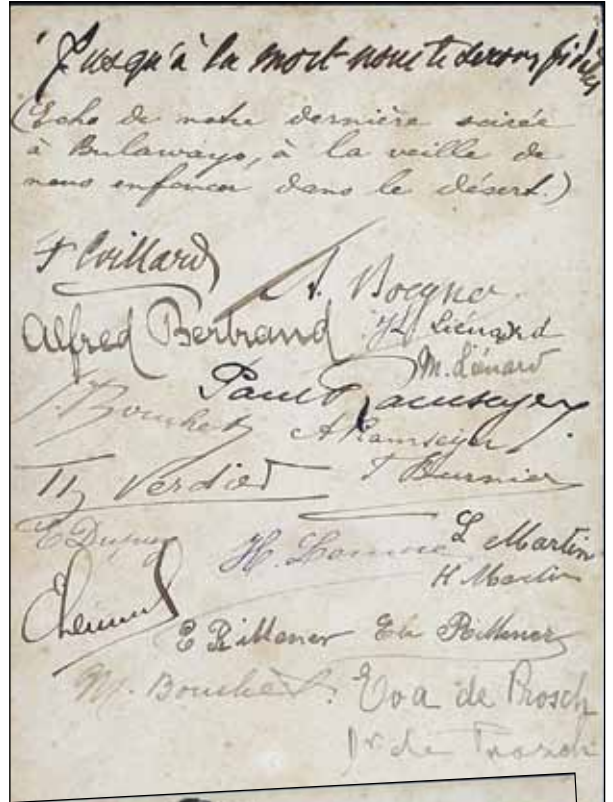 "Jusqu'à la mort nous te serons fidèles
(Echo de notre dernière soirée
à Bulawayo, à la veille de
nous enfoncer dans le désert.)
F Coillard
A. Boegner.
Alfred Bertrand
Liénard
M. Liénard
Paul Ramseyer
J. Bouchet
A Ramseyer
Th Verdier
T Burnier
E Dupuy
L Martin
H.
H Martin
E Rittener Eh Rittener
M. Bouchet.
Eva de Prosch
Dr de Prosch